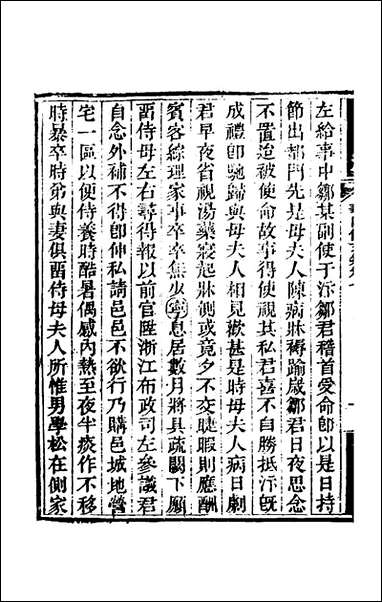 左給事中鄒某副使于汴鄒君稽首受命卽以是日持
節出都門先是母夫人陳病牀褥踰歲鄒君日夜思念
不置迨被使命故事得使視其私君喜不自勝抵汴旣
成禮卽馳歸與母夫人相見歡甚是時母夫人病日劇
君早夜省視湯藥寢起牀側或竟夕不交睫暇則應酬
賓客綜理家事卒卒無少寧息居數月將具疏闕下願
畱侍母左右尋得報以前官陞浙江布政司左參議君
自念外補不得卽伸私請邑邑不欲行乃購邑城地營
宅一區以便侍養時酷暑偶感內熱至夜半痰作不移
時暴卒時弟與妻俱畱侍母夫人所惟男學松在側家